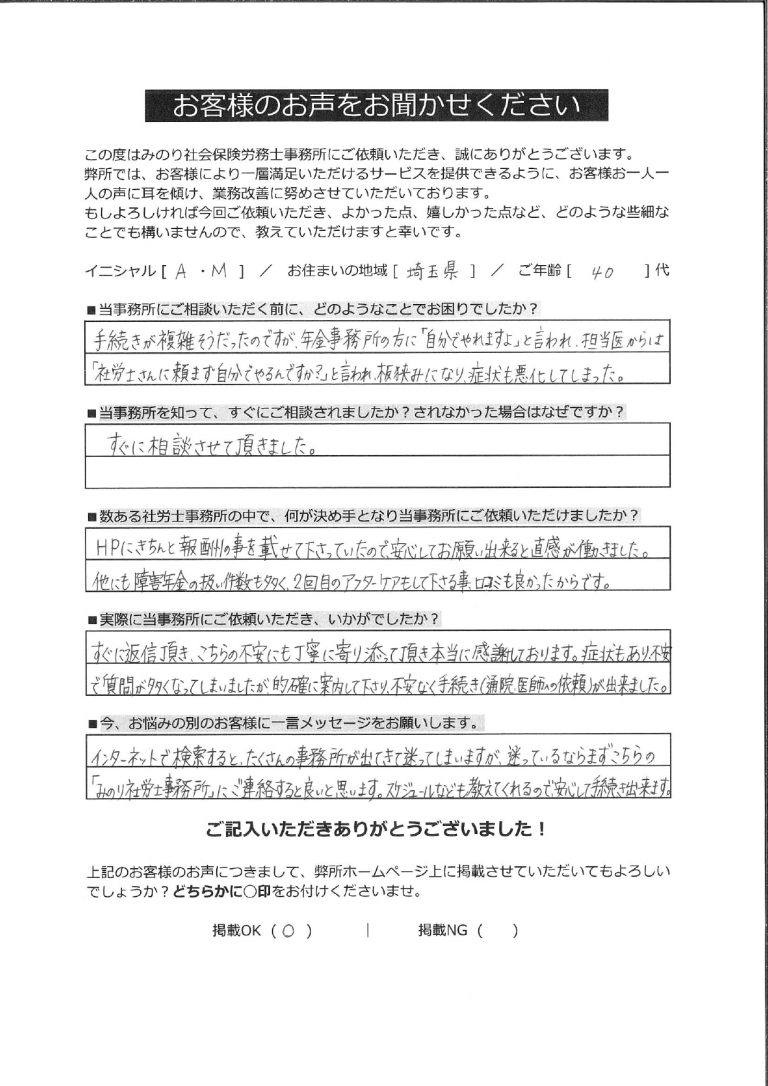 お客様のお声をお聞かせください
この度はみのり社会保険労務士事務所にご依頼いただき、誠にありがとうございます。
弊所では、お客様により一層満足いただけるサービスを提供できるように、お客様お一人一
人の声に耳を傾け、業務改善に努めさせていただいております。
もしよろしければ今回ご依頼いただき、よかった点、嬉しかった点など、どのような些細な
ことでも構いませんので、教えていただけますと幸いです。
イニシャル [ A ・M ] ／ お住まいの地域 [ 埼玉県 ] ／ ご年齢 [ 40 ] 代
■当事務所にご相談いただく前に、どのようなことでお困りでしたか？
手続きが複雑そうだったのですが、年金事務所の方に「自分でやれますよ」と言われ、担当医からは
「社労士さんに頼まず自分でやるんですか？」と言われ、板狭みになり、症状も悪化してしまった。
■当事務所を知って、すぐにご相談されましたか？されなかった場合はなぜですか？
すぐに相談させて頂きました。
■数ある社労士事務所の中で、何が決め手となり当事務所にご依頼いただけましたか？
HPにきちんと報酬の事を載せて下さっていたので、安心してお願い出来ると直感が働きました。
他にも障害年金の扱い件数も多く、2回目のアフターケアもして下さる事、口コミも良かったからです。
■実際に当事務所にご依頼いただき、いかがでしたか？
すぐに返信頂き、こちらの不安にも丁寧に寄り添って頂き本当に感謝しております。症状もあり、不安
で質問が多くなってしまいましたが、的確に案内して下さり、不安なく手続き(通院、医師への依頼)が出来ました。
■今、お悩みの別のお客様に一言メッセージをお願いします。
インターネットで検索すると、たくさんの事務所が出てきて迷ってしまいますが、迷っているならまずこちらの
「みのり社労士事務所」にご連絡すると良いと思います。スケジュールなども教えてくれるので、安心して手続き出来ます。
ご記入いただきありがとうございました！
上記のお客様のお声につきまして、弊所ホームページ上に掲載させていただいてもよろしい
でしょうか？どちらかに○印をお付けくださいませ。
掲載OK （ ○ ） ｜ 掲載NG （ ）